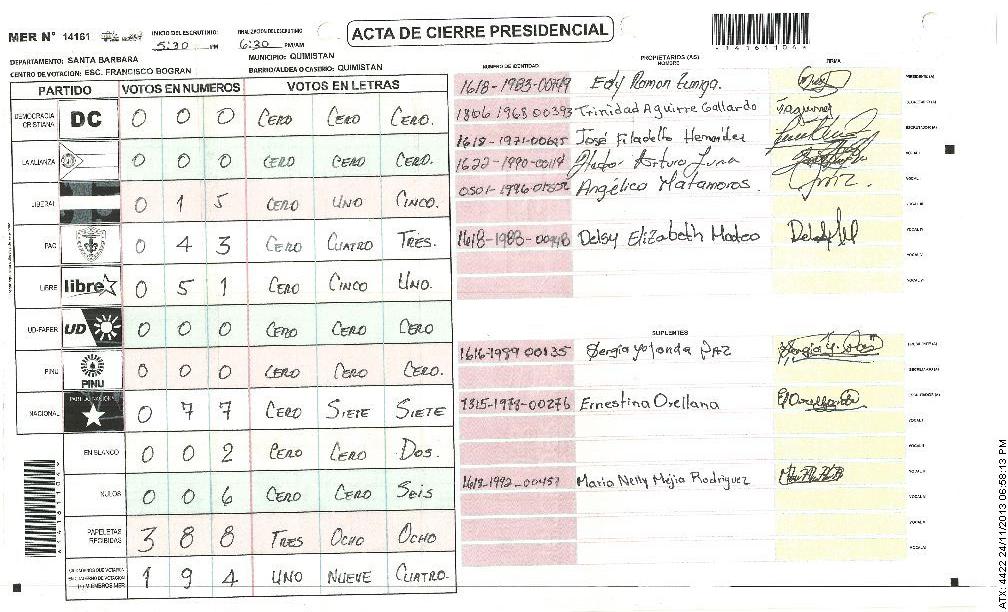 MER N° 14161
INICIO DEL ESCRUTINIO:
5:30 PM
FINALIZACION DEL ESCRUTINIO
6:30 PM/AM
ACTA DE CIERRE PRESIDENCIAL
*14161104*
DEPARTAMENTO: SANTA BARBARA
MUNICIPIO: QUIMISTAN
CENTRO DE VOTACION: ESC. FRANCISCO BOGRAN
BARRIO/ALDEA O CASERIO: QUIMISTAN
PARTIDO VOTOS EN NUMEROS VOTOS EN LETRAS
DEMOCRACIA CRISTIANA DC 0 0 0 CERO CERO CERO.
LA ALIANZA 0 0 0 CERO CERO CERO
LIBERAL 0 1 5 CERO UNO CINCO.
PAC 0 4 3 CERO CUATRO TRES.
LIBRE libre 0 5 1 CERO CINCO UNO.
UD-FAPER UD 0 0 0 CERO CERO CERO
PINU PINU 0 0 0 CERO CERO CERO.
NACIONAL PARTIDO NACIONAL 0 7 7 CERO SIETE SIETE
EN BLANCO 0 0 2 CERO CERO DOS.
NULOS 0 0 6 CERO CERO SEIS
PAPELETAS RECIBIDAS 3 8 8 TRES OCHO OCHO
1 9 4 UNO NUEVE CUATRO.
PROPIETARIOS (AS)
NUMERO DE IDENTIDAD NOMBRE FIRMA
Edy Ramon Zuniga. PRESIDENTE (A)
1806 1968 00393 Trinidad Aguirre Gallardo SECRETARIO (A)
José Filadelfo Hernández ESCRUTADOR (A)
1622-1990-00114 Arturo Luna VOCAL I
Angélica Matamoros. VOCAL II
VOCAL III
Delsy Elizabeth Mateo VOCAL IV
VOCAL V
VOCAL VI
SUPLENTES
1616-1989 00135 Sergia Yolanda Paz
SECRETARIO (A)
1315-1978-00276 Ernestina Orellana
VOCAL I
VOCAL II
1618-1992-00457 Maria Nelly Mejia Rodriguez
VOCAL IV
VOCAL V
VOCAL VI
ATX: 4422 24/11/2013 06:58:13 PM